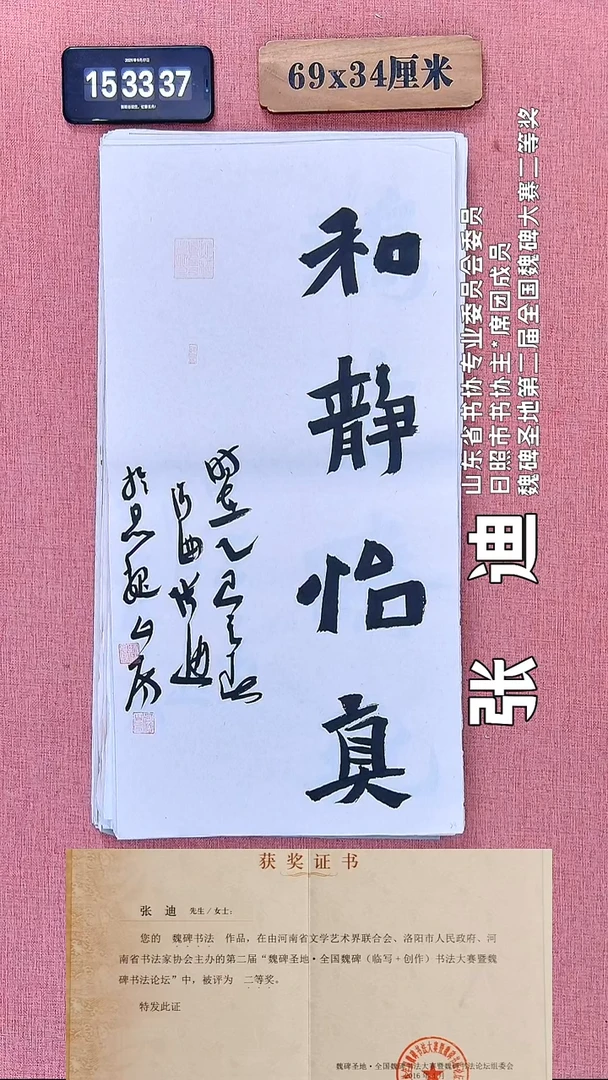 15 33 37
69x34厘米
和静怡真
时在乙巳之春
张迪
于思魏山房
山东省书协专业委员会委员
日照市书协主*席团成员
魏碑圣地第二届全国魏碑大赛二等奖
张 迪
获奖证书
张 迪 先生/女士:
您的 魏碑书法 作品，在由河南省文学艺术界联合会、洛阳市人民政府、河
南省书法家协会主办的第二届“魏碑圣地·全国魏碑（临写+创作）书法大赛暨魏
碑书法论坛”中，被评为 二等奖。
特发此证
魏碑圣地·全国魏碑书法大赛暨魏碑书法论坛组委会